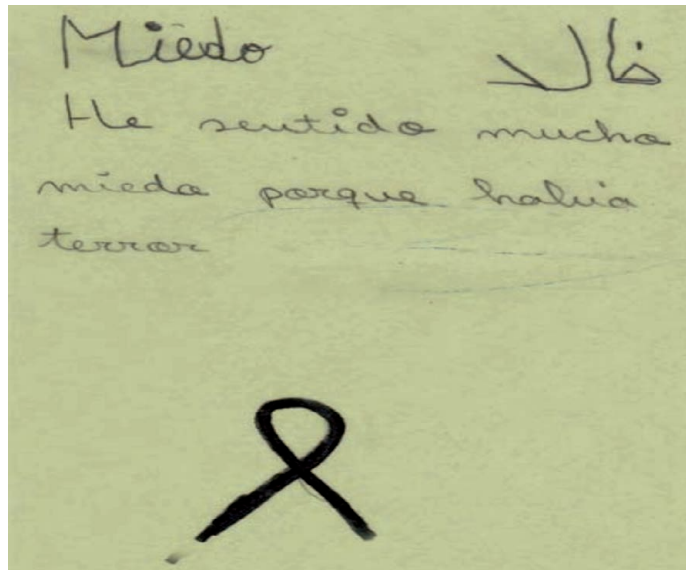 Miedo خالد
He sentido mucho
miedo porque había
terror